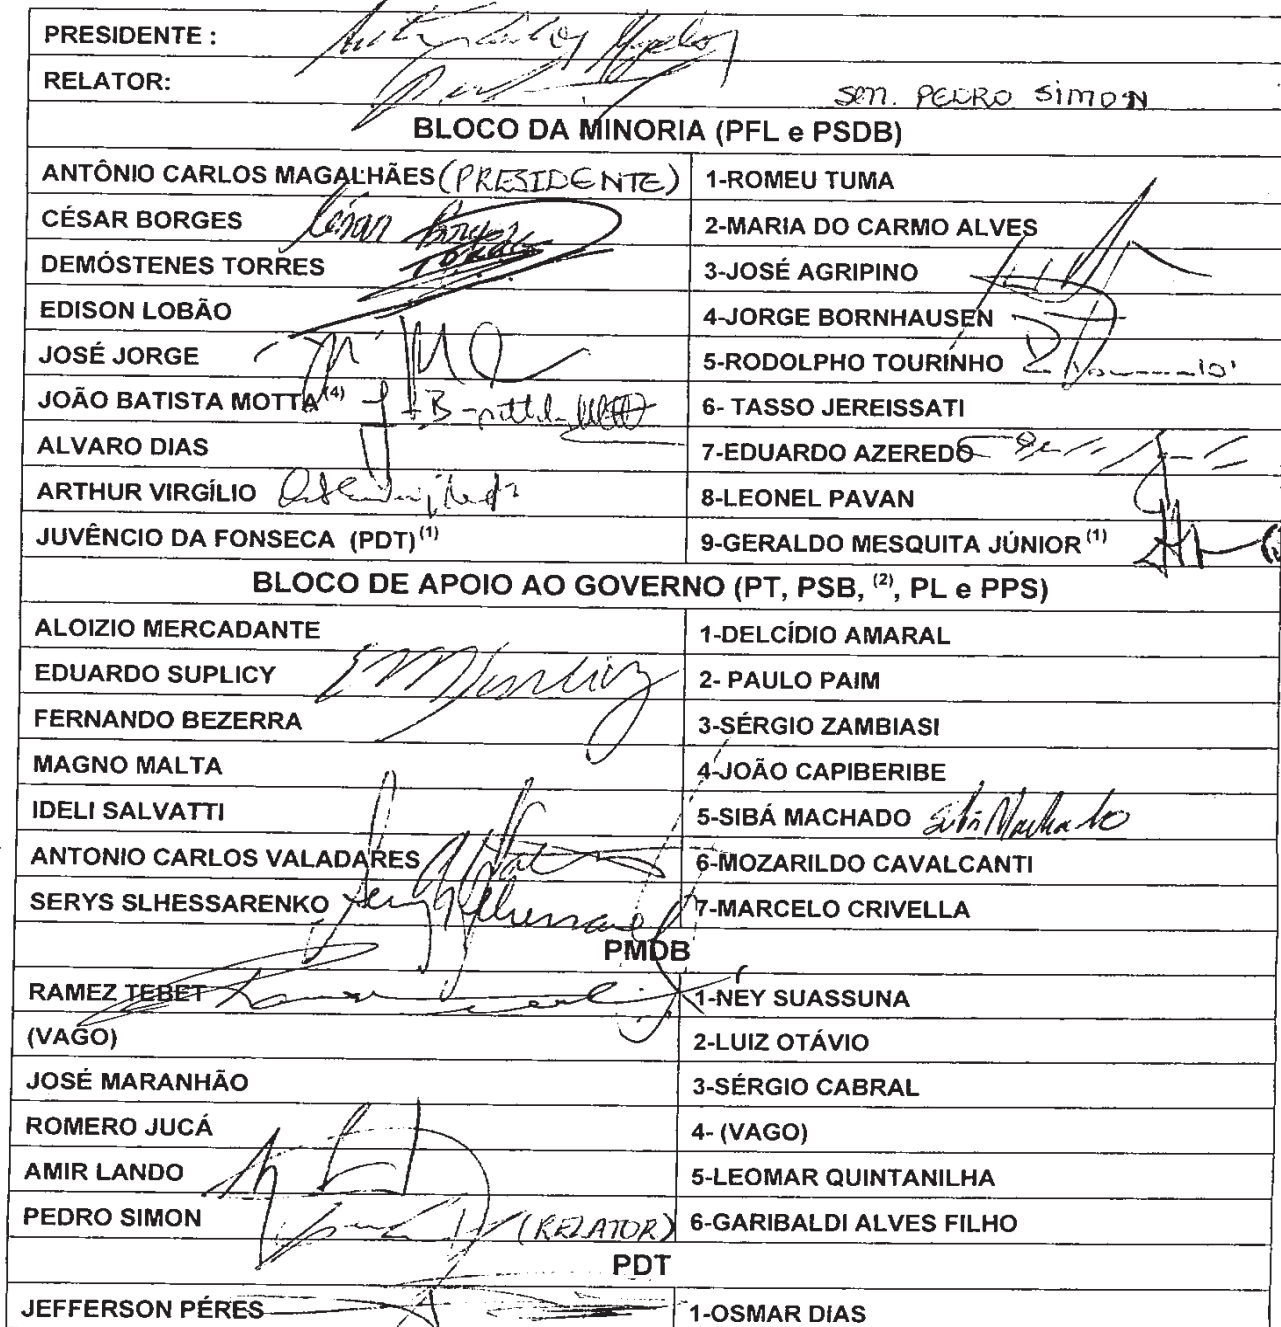 PRESIDENTE :
RELATOR: sen. PEDRO SIMON
BLOCO DA MINORIA (PFL e PSDB)
ANTÔNIO CARLOS MAGALHÃES (PRESIDENTE) 1-ROMEU TUMA
CÉSAR BORGES César Borges 2-MARIA DO CARMO ALVES
DEMÓSTENES TORRES 3-JOSÉ AGRIPINO
EDISON LOBÃO 4-JORGE BORNHAUSEN
JOSÉ JORGE 5-RODOLPHO TOURINHO
JOÃO BATISTA MOTTA (4) 6- TASSO JEREISSATI
ALVARO DIAS 7-EDUARDO AZEREDO
ARTHUR VIRGÍLIO 8-LEONEL PAVAN
JUVÊNCIO DA FONSECA (PDT) (1) 9-GERALDO MESQUITA JÚNIOR (1)
BLOCO DE APOIO AO GOVERNO (PT, PSB, (2), PL e PPS)
ALOIZIO MERCADANTE 1-DELCÍDIO AMARAL
EDUARDO SUPLICY 2- PAULO PAIM
FERNANDO BEZERRA 3-SÉRGIO ZAMBIASI
MAGNO MALTA 4-JOÃO CAPIBERIBE
IDELI SALVATTI 5-SIBÁ MACHADO Sibá Machado
ANTONIO CARLOS VALADARES 6-MOZARILDO CAVALCANTI
SERYS SLHESSARENKO 7-MARCELO CRIVELLA
PMDB
RAMEZ TEBET 1-NEY SUASSUNA
(VAGO) 2-LUIZ OTÁVIO
JOSÉ MARANHÃO 3-SÉRGIO CABRAL
ROMERO JUCÁ 4- (VAGO)
AMIR LANDO 5-LEOMAR QUINTANILHA
PEDRO SIMON (RELATOR) 6-GARIBALDI ALVES FILHO
PDT
JEFFERSON PÉRES 1-OSMAR DIAS